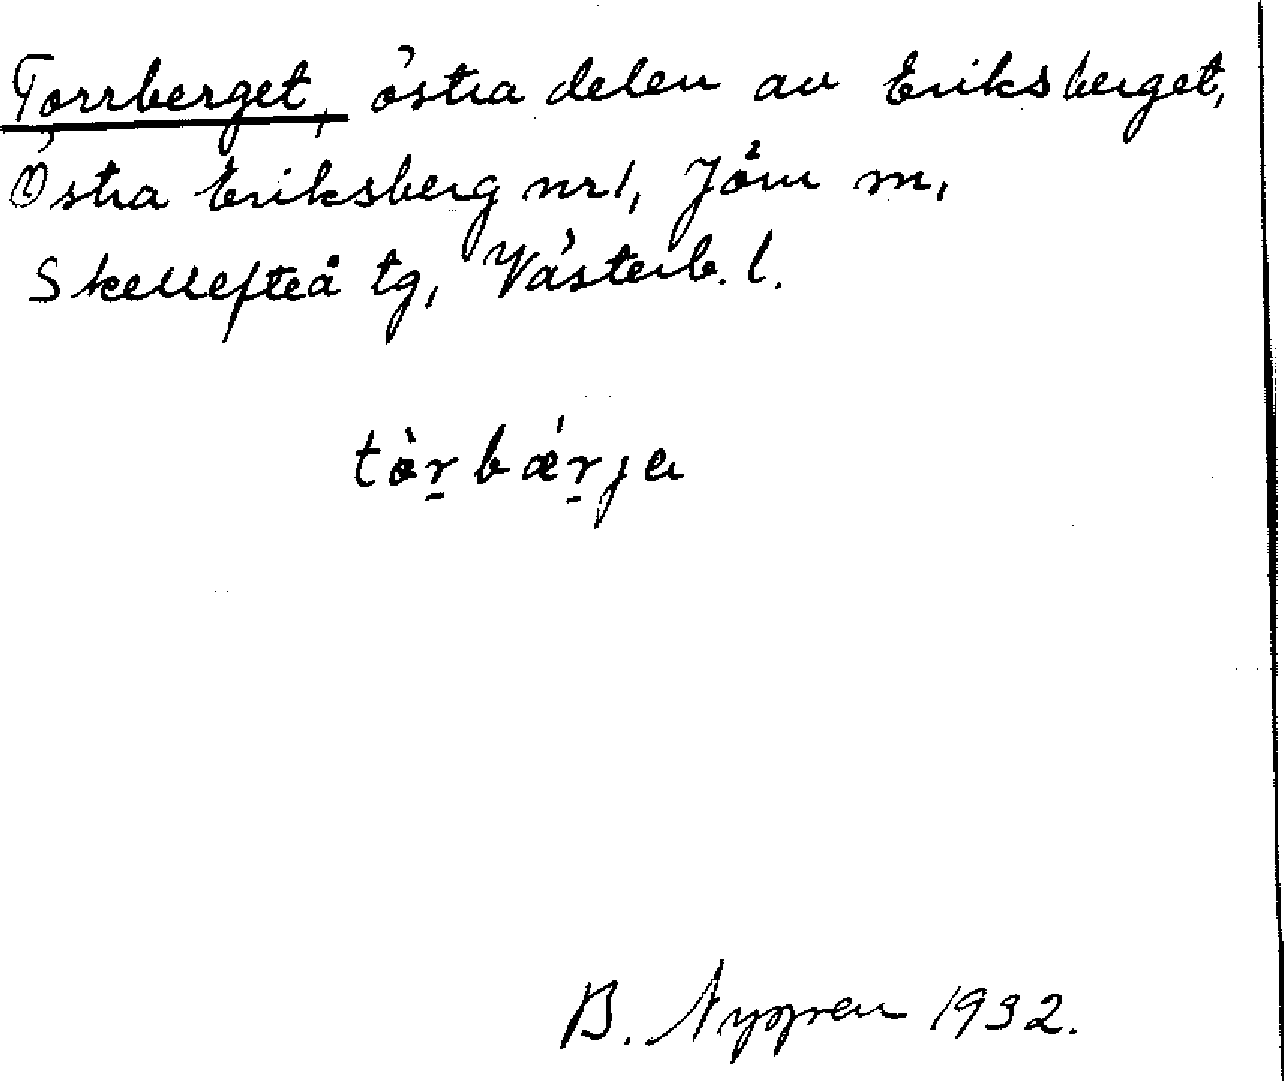 Torrberget, östra delen av Eriksberget,
Östra Eriksberg nr 1, Jörn m,
Skellefteå tg, Västerb. l.
tòr̠bǽr̠ja
B. Nygren 1932.